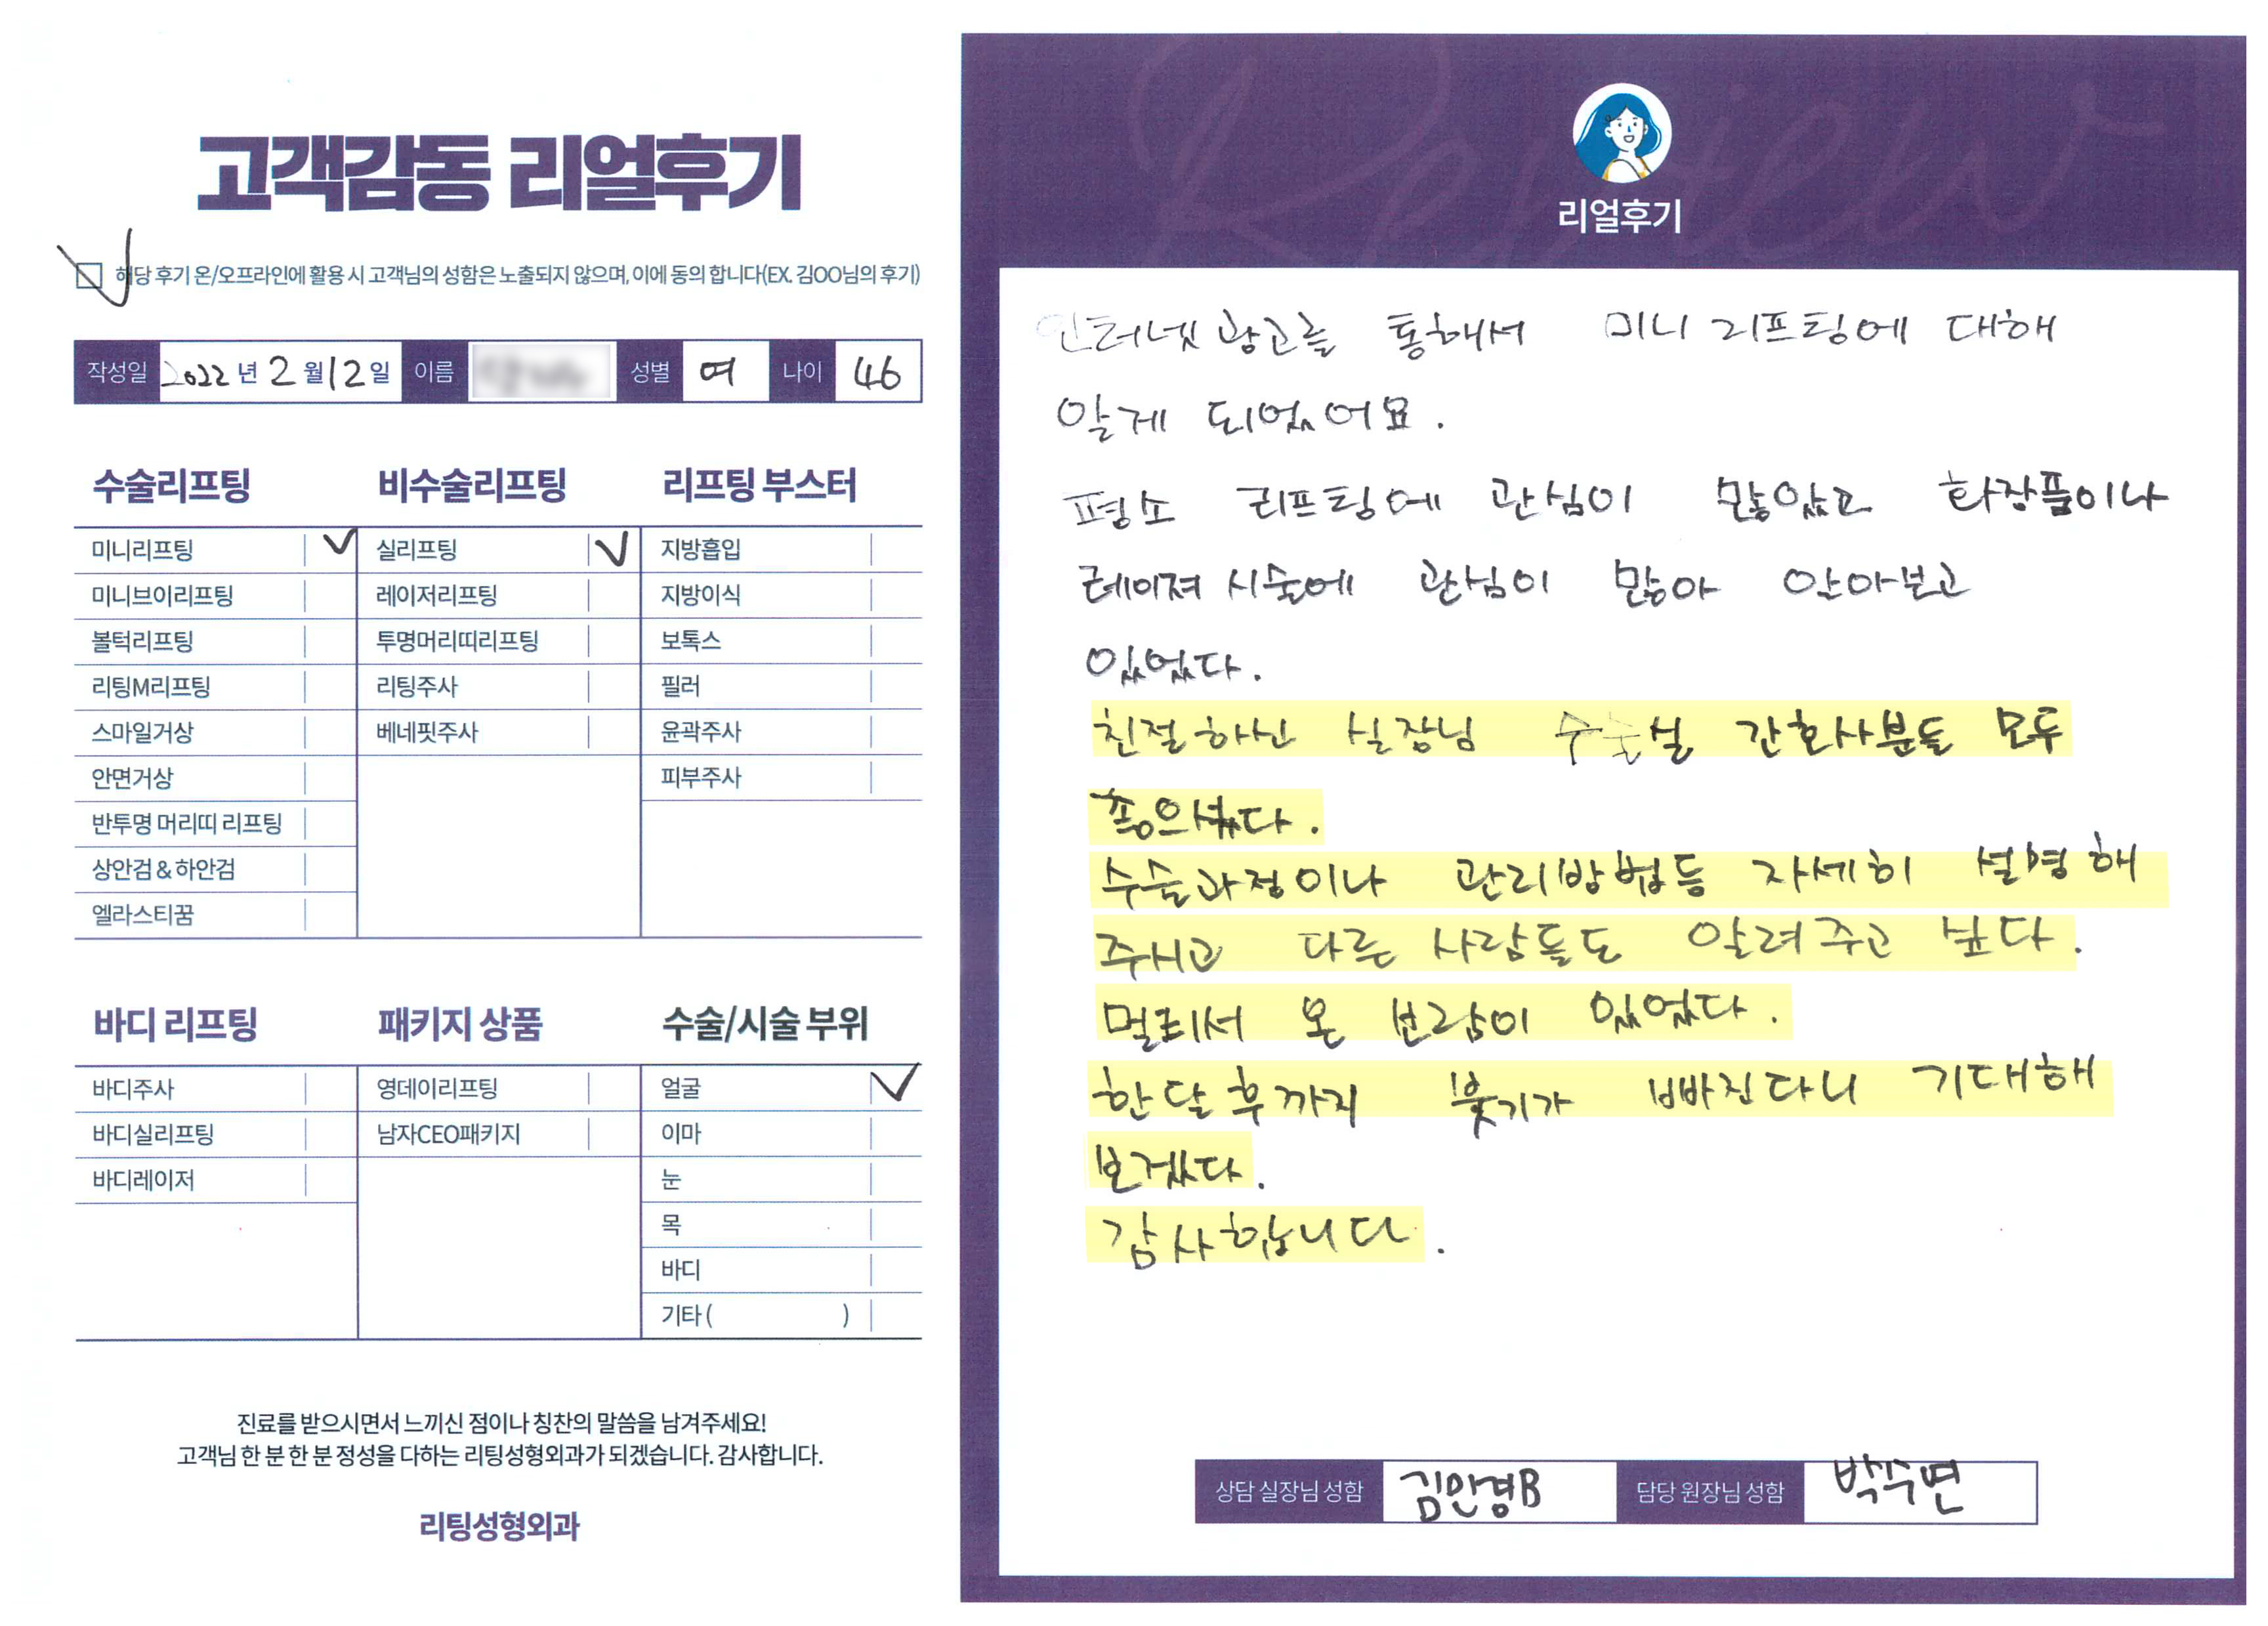 고객감동 리얼후기
해당 후기 온/오프라인에 활용 시 고객님의 성함은 노출되지 않으며, 이에 동의 합니다(EX. 김OO님의 후기)
작성일 2022년 2월 12일 이름 성별 여 나이 46
수술리프팅 비수술리프팅 리프팅 부스터
미니리프팅 실리프팅 지방흡입
미니브이리프팅 레이저리프팅 지방이식
볼턱리프팅 투명머리띠리프팅 보톡스
리팅M리프팅 리팅주사 필러
스마일거상 베네핏주사 윤곽주사
안면거상 피부주사
반투명 머리띠 리프팅
상안검 & 하안검
엘라스티꿈
바디 리프팅 패키지 상품 수술/시술 부위
바디주사 영데이리프팅 얼굴
바디실리프팅 남자CEO패키지 이마
바디레이저 눈
목
바디
기타 ( )
진료를 받으시면서 느끼신 점이나 칭찬의 말씀을 남겨주세요!
고객님 한 분 한 분 정성을 다하는 리팅성형외과가 되겠습니다. 감사합니다.
리팅성형외과
Review
리얼후기
인터넷 광고를 통해서 미니 리프팅에 대해
알게 되었어요.
평소 리프팅에 관심이 많았고 화장품이나
레이져 시술에 관심이 많아 알아보고
있었다.
친절하신 실장님 수술실 간호사분들 모두
좋으셨다.
수술과정이나 관리방법등 자세히 설명해
주시고 다른 사람들도 알려주고 싶다.
멀리서 온 보람이 있었다.
한달 후까지 붓기가 빠진다니 기대해
보겠다.
감사합니다.
상담 실장님 성함 김안경B 담당 원장님 성함 박수연